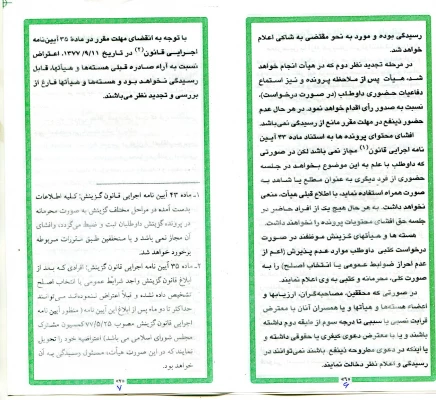 رسیدگی بوده و مورد به نحو مقتضی به شاکی اعلام
خواهد شد.
در مرحله تجدید نظر دوم که در هیأت انجام خواهد
شد، هیأت پس از ملاحظه پرونده و نیز استماع
دفاعیات حضوری داوطلب (در صورت درخواست)،
نسبت به صدور رأی اقدام خواهد نمود. در هر حال عدم
حضور ذینفع در مهلت مقرر مانع از رسیدگی نمی‌باشد.
افشای محتوای پرونده ها به استناد ماده ۴۳ آیین
نامه اجرایی قانون(۱) مجاز نمی باشد لکن در صورتی
که داوطلب با علم به این موضوع بخواهد در جلسه
حضوری از فرد دیگری به عنوان مطلع یا شاهد به
صورت همراه استفاده نماید، با اطلاع قبلی هیأت، منعی
نخواهد داشت. به هر حال هیچ یک از افراد حاضر در
جلسه حق افشای محتویات پرونده را نخواهند داشت.
هسته ها و هیأتهای گزینش موظفند در صورت
درخواست کتبی داوطلب موارد عدم پذیرش (اعم از
عدم احراز ضوابط عمومی یا انتخاب اصلح) را به
صورت کلی، محرمانه و کتبی به وی اعلام نمایند.
در صورتی که محققین، مصاحبه‌گران، ارزیابها و
اعضاء هسته‌ها و هیأتها و یا همسران آنان با معترض
قرابت نسبی یا سببی تا درجه سوم از طبقه دوم داشته
باشند و یا با معترض دعوی کیفری یا حقوقی داشته و
یا اینکه در دعوی مطروحه ذینفع باشند نمی‌توانند در
رسیدگی و اعلام نظر دخالت نمایند.
۶
با توجه به انقضای مهلت مقرر در ماده ۳۵ آیین‌نامه
اجرایی قانون(۲) در تاریخ ۱۳۷۷/۹/۱۱، اعتراض
نسبت به آراء صادره قبلی هسته‌ها و هیأتها، قابل
رسیدگی نخواهد بود و هسته‌ها و هیأتها فارغ از
بررسی و تجدید نظر می‌باشند.
۱ـ ماده ۴۳ آیین نامه اجرایی قانون گزینش: کلیه اطلاعات
بدست آمده در مراحل مختلف گزینش به صورت محرمانه
در پرونده گزینش داوطلبان ثبت و ضبط می‌گردد، افشای
آن مجاز نمی باشد و با متخلفین طبق مقررات مربوطه
برخورد خواهد شد.
۲ـ ماده ۳۵ آیین نامه اجرایی قانون گزینش: افرادی که بعد از
ابلاغ قانون گزینش واجد شرایط عمومی یا انتخاب اصلح
تشخیص داده نشده و قبلاً اعتراض ننموده‌اند، می‌توانند
حداکثر تا دو ماه پس از ابلاغ این آیین نامه (منظور آیین نامه
اجرایی قانون گزینش مصوب ۷۷/۵/۲۵ کمیسیون مشترک
مجلس شورای اسلامی می باشد) اعتراضیه خود را تحویل
نمایند که در این صورت هیأت، مسئول رسیدگی به آن
خواهد بود.
۷